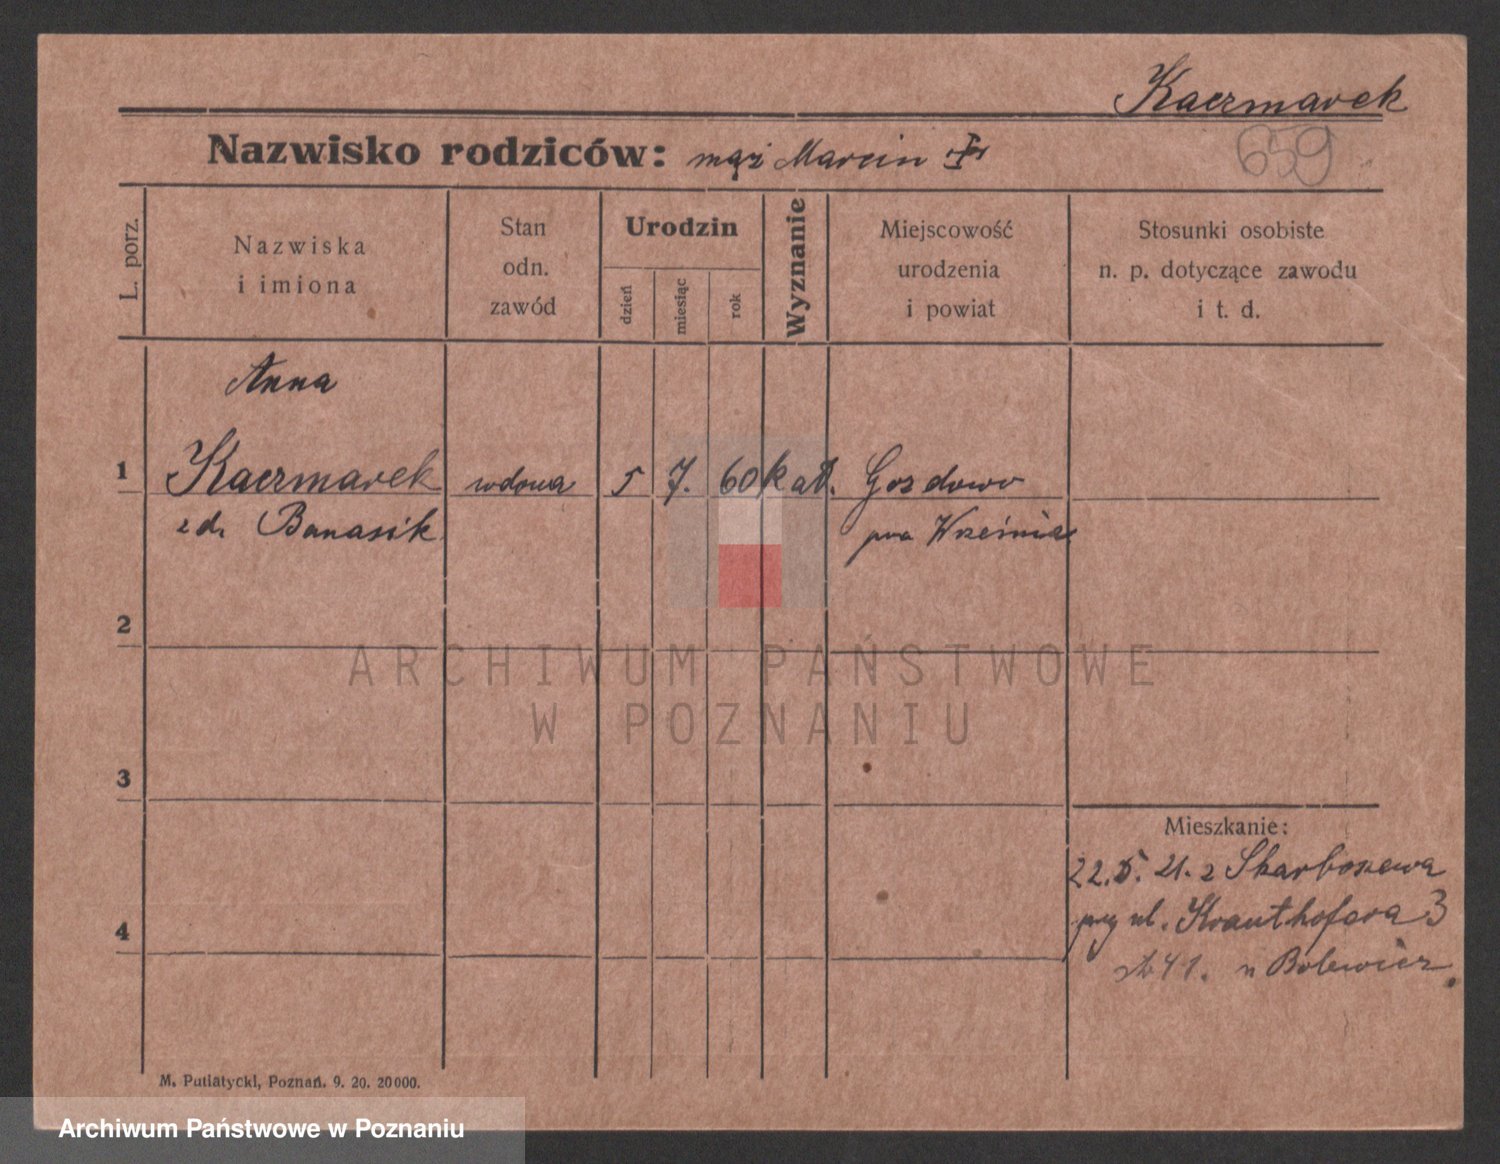 Kaczmarek
659
Nazwisko rodziców: mąż Marcin
L. porz.
Nazwiska
i imiona
Stan
odn.
zawód
Urodzin
dzień
miesiąc
rok
Wyznanie
Miejscowość
urodzenia
i powiat
Stosunki osobiste
n. p. dotyczące zawodu
i t. d.
Anna
1 Kaczmarek wdowa 5 7. 60 kat. Gozdowo
zd. Banasik Września
2
ARCHIWUM PAŃSTWOWE
W POZNANIU
3
Mieszkanie:
22.5.21. z Skarboszewa
przy ul. Krauthofera 3
4
41. u Bolewicz
M. Putiatycki, Poznań. 9. 20. 20000.
Archiwum Państwowe w Poznaniu